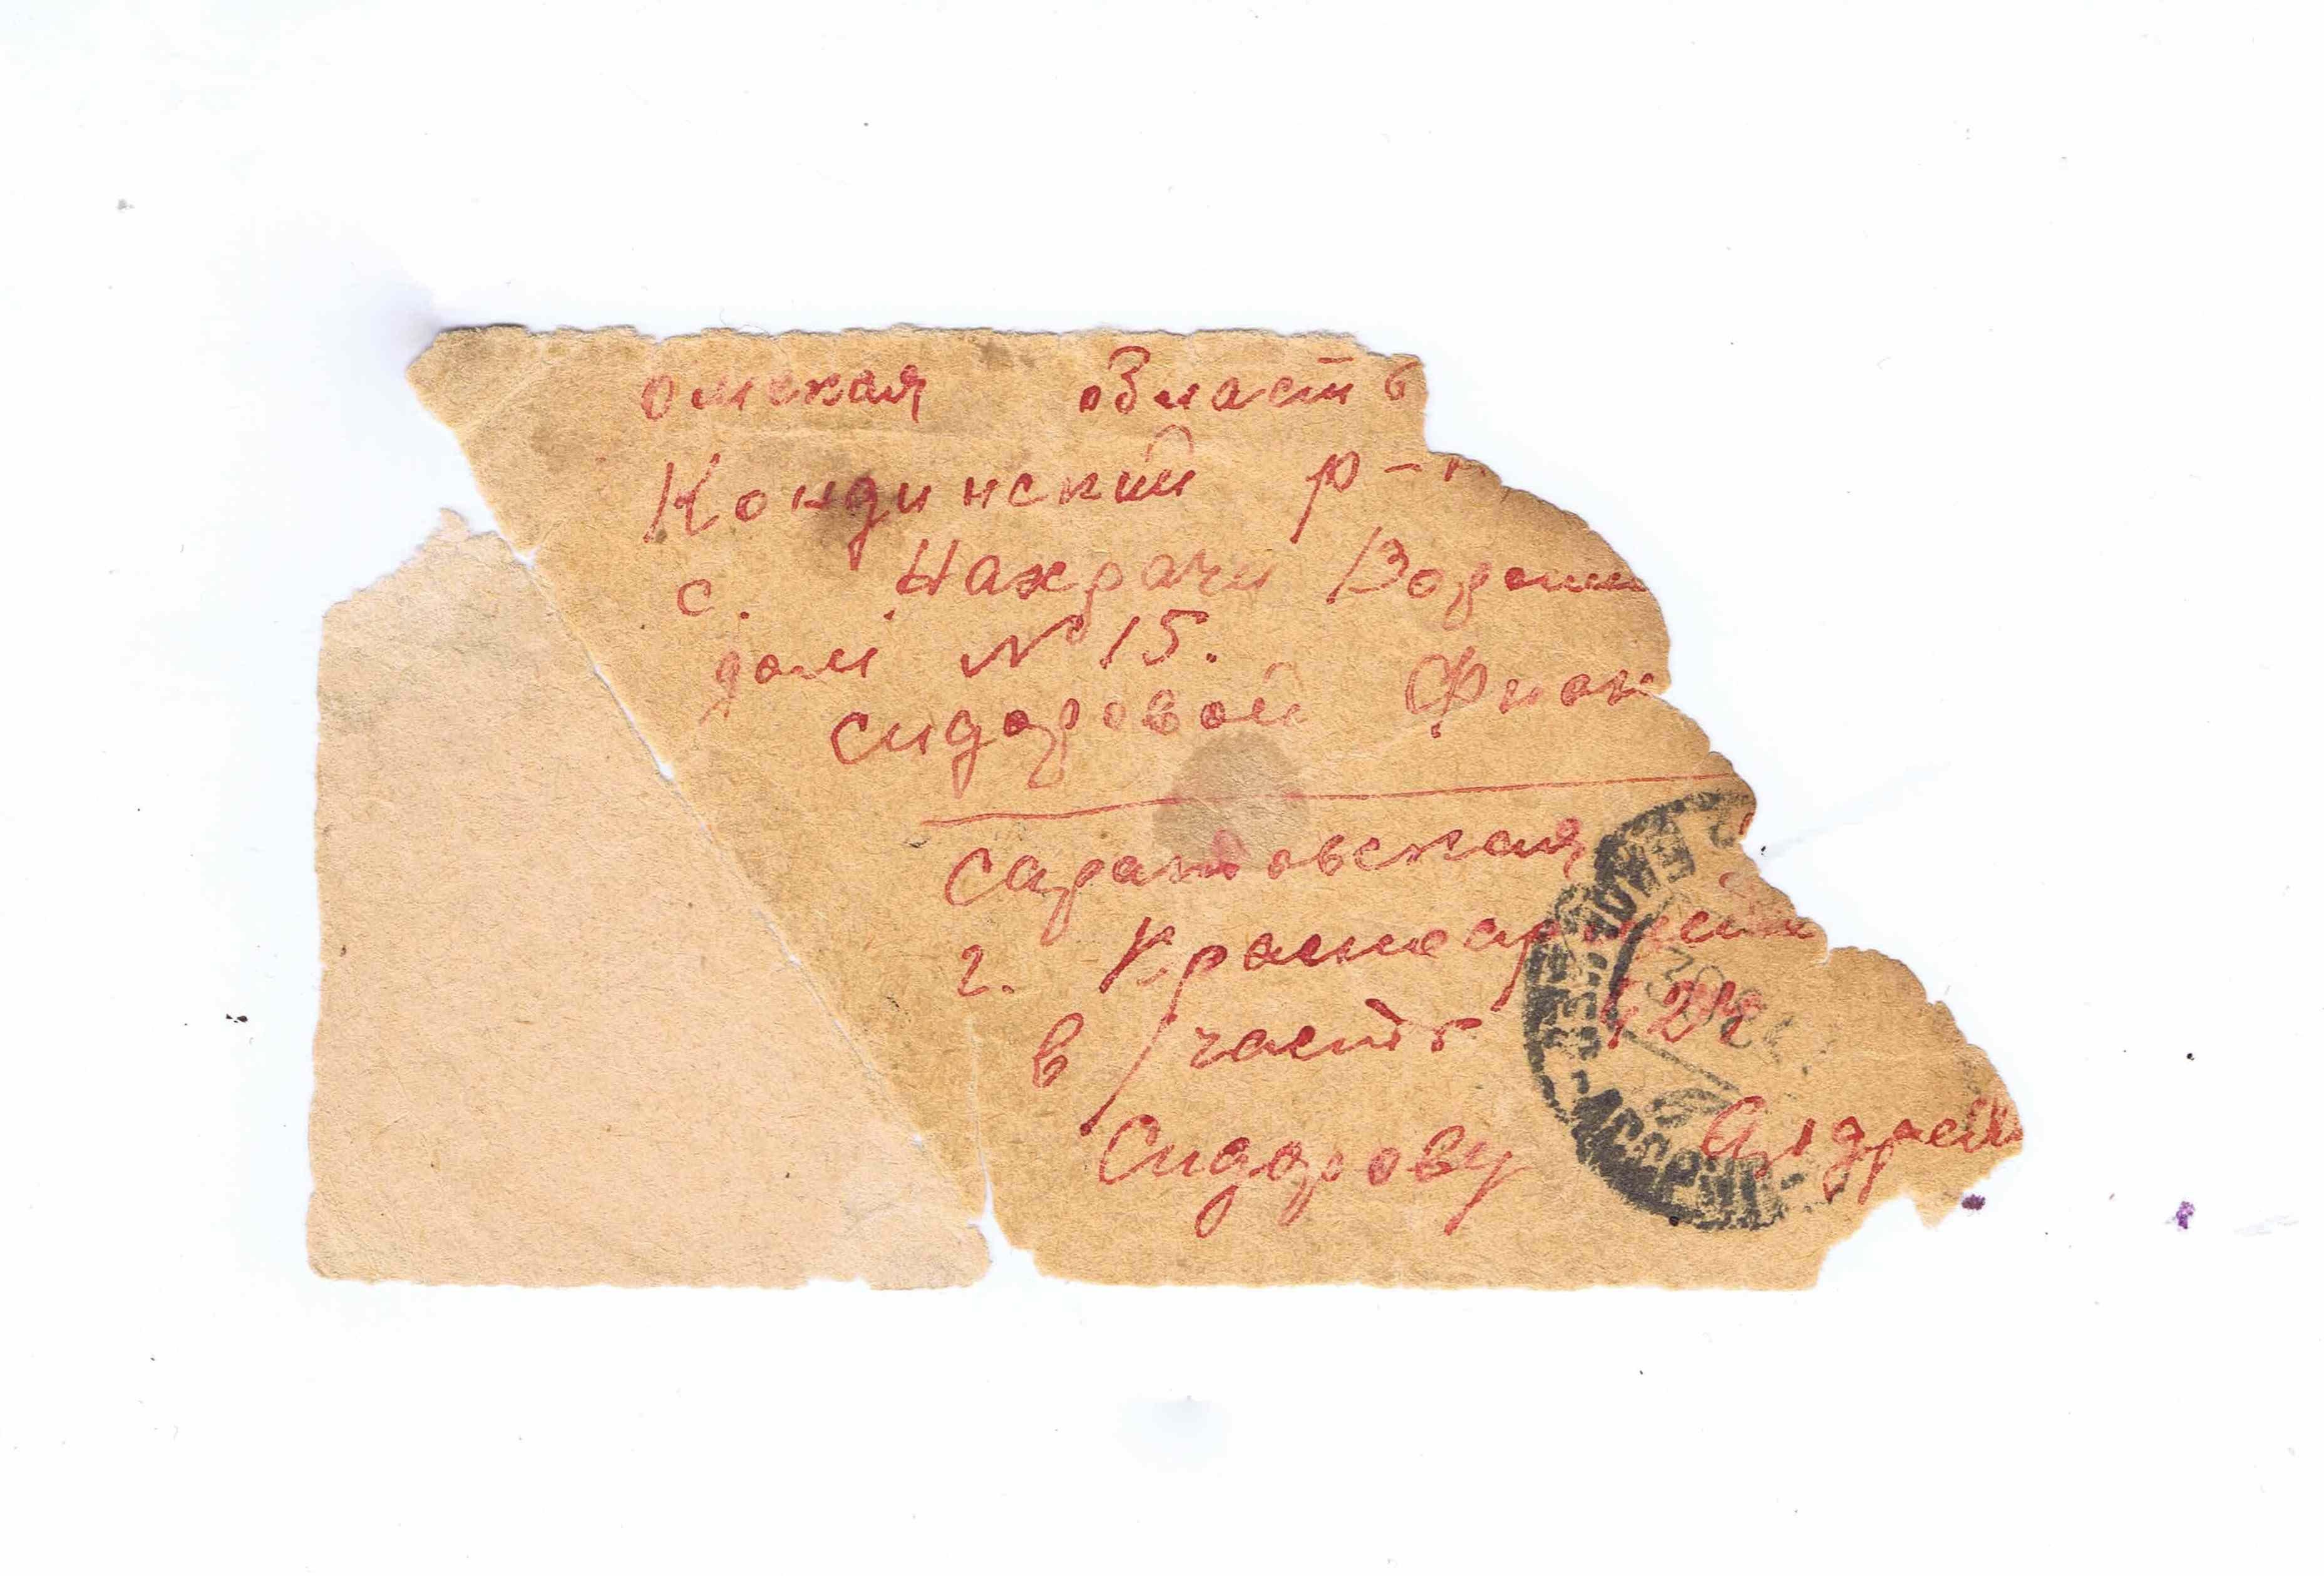 омская область
Кондинский р-н
с. Нахрачи Вороши
дом № 15.
Сидоровой Фион
саратовская
г. Красноармейск
в/часть
Сидорову Андрей